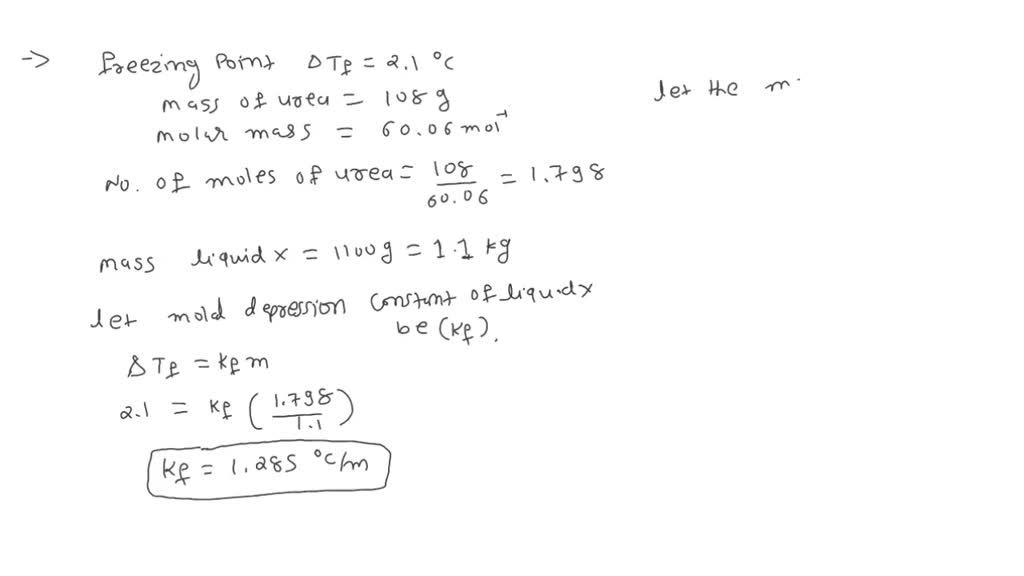 → freezing Point ΔTf = 2.1 °C
mass of urea = 108 g
molar mass = 60.06 mol⁻¹
No. of moles of urea = 108/60.06 = 1.798
mass liquid x = 1100g = 1.1 kg
let mold depression constant of liquid x
be (kf).
ΔTf = kf m
2.1 = kf (1.798/1.1)
kf = 1.285 °C/m
let the m.